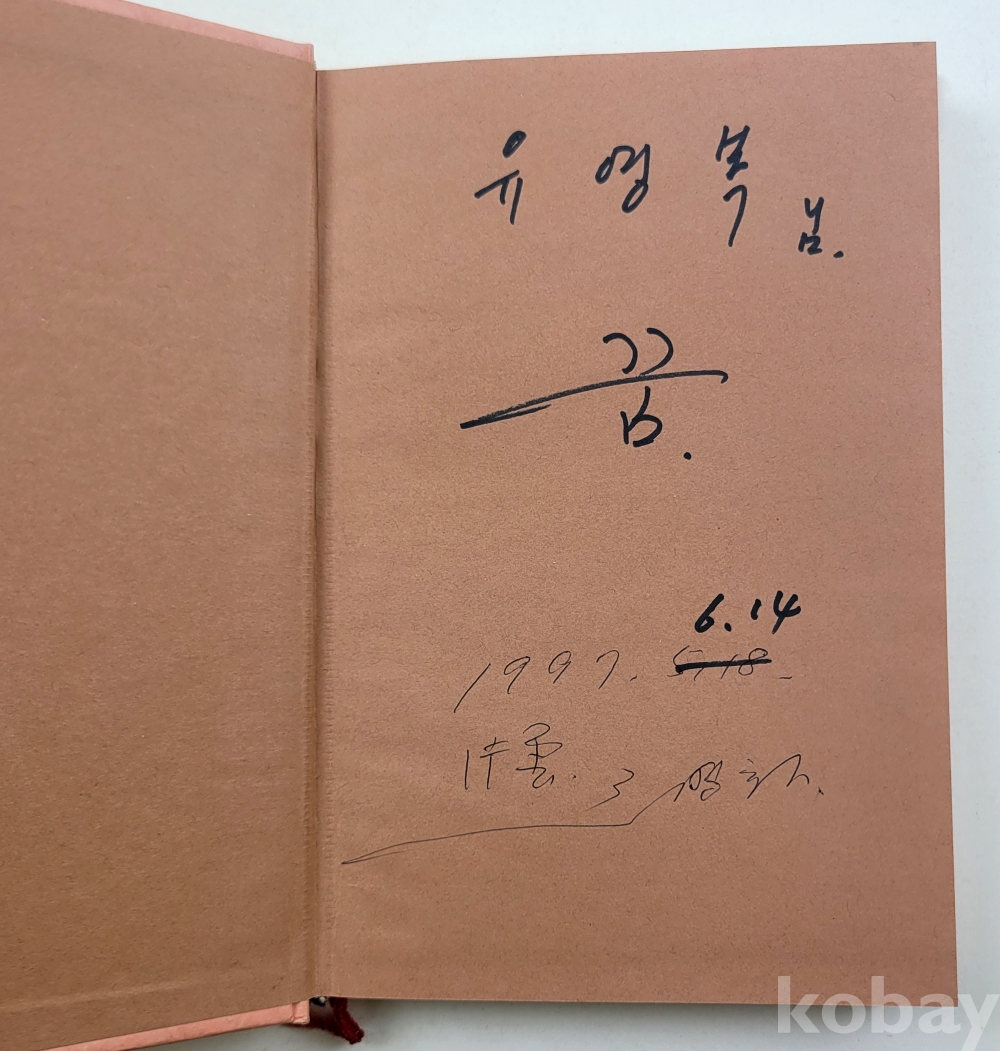 유영복님.
꿈.
6.14
1997. 5.18.
kobay